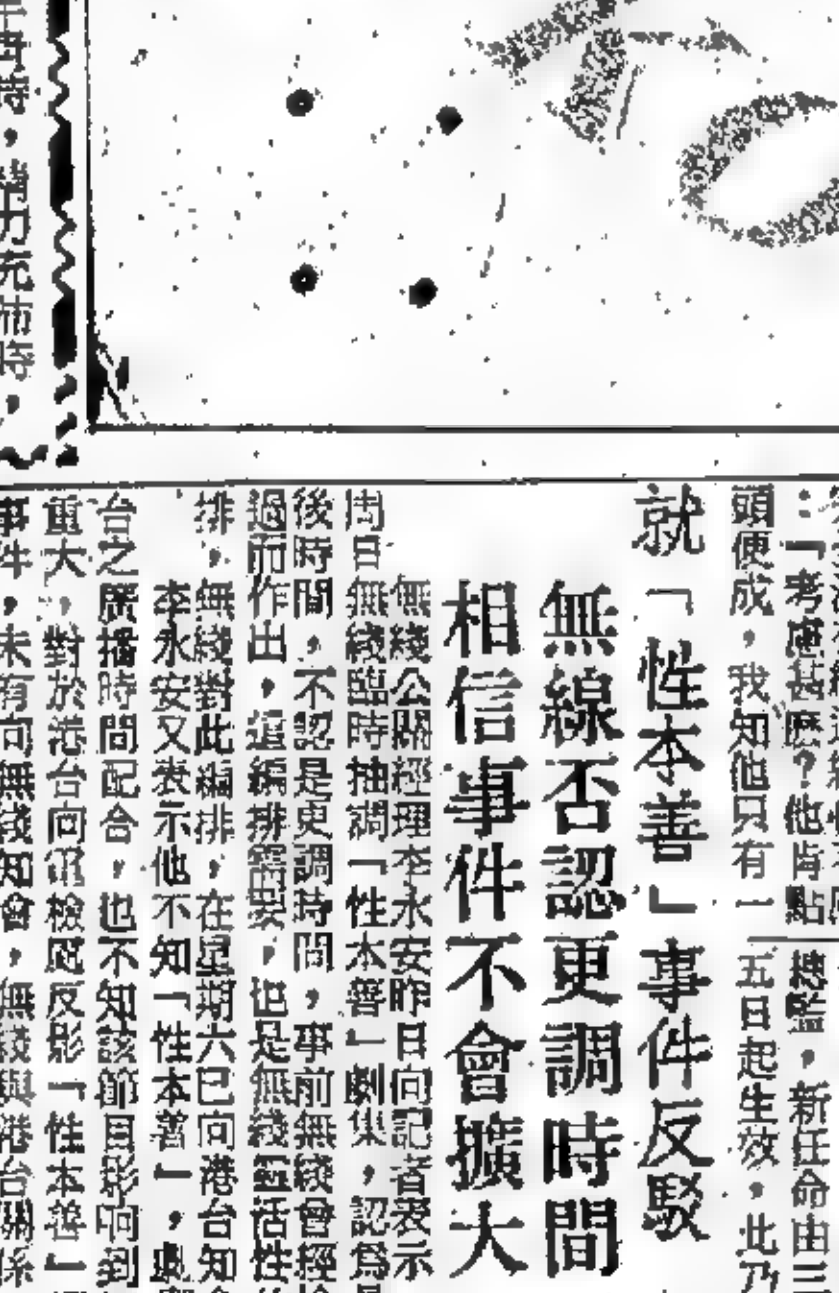 ：「考慮甚麽？他肯點
頭便成，我知他只有一
總監，新任命由三
五日起生效，此乃
就「性本善」事件反駁
無線否認更調時間
相信事件不會擴大
無綫公關經理李永安昨日向記者表示
周日無綫臨時抽調「性本善」劇集，認爲是
後時間，不認是更調時間，事前無綫曾經
過而作出，這編排需要，也是無綫靈活性
排，無綫對此編排，在星期六已向港台知
李永安又表示他不知「性本善」，與
台之廣播時間配合，也不知該節目影响到
重大，對於港台向電檢處反影「性本善」
事件，未有向無綫知會，無綫與港台關係
，精力充沛時，